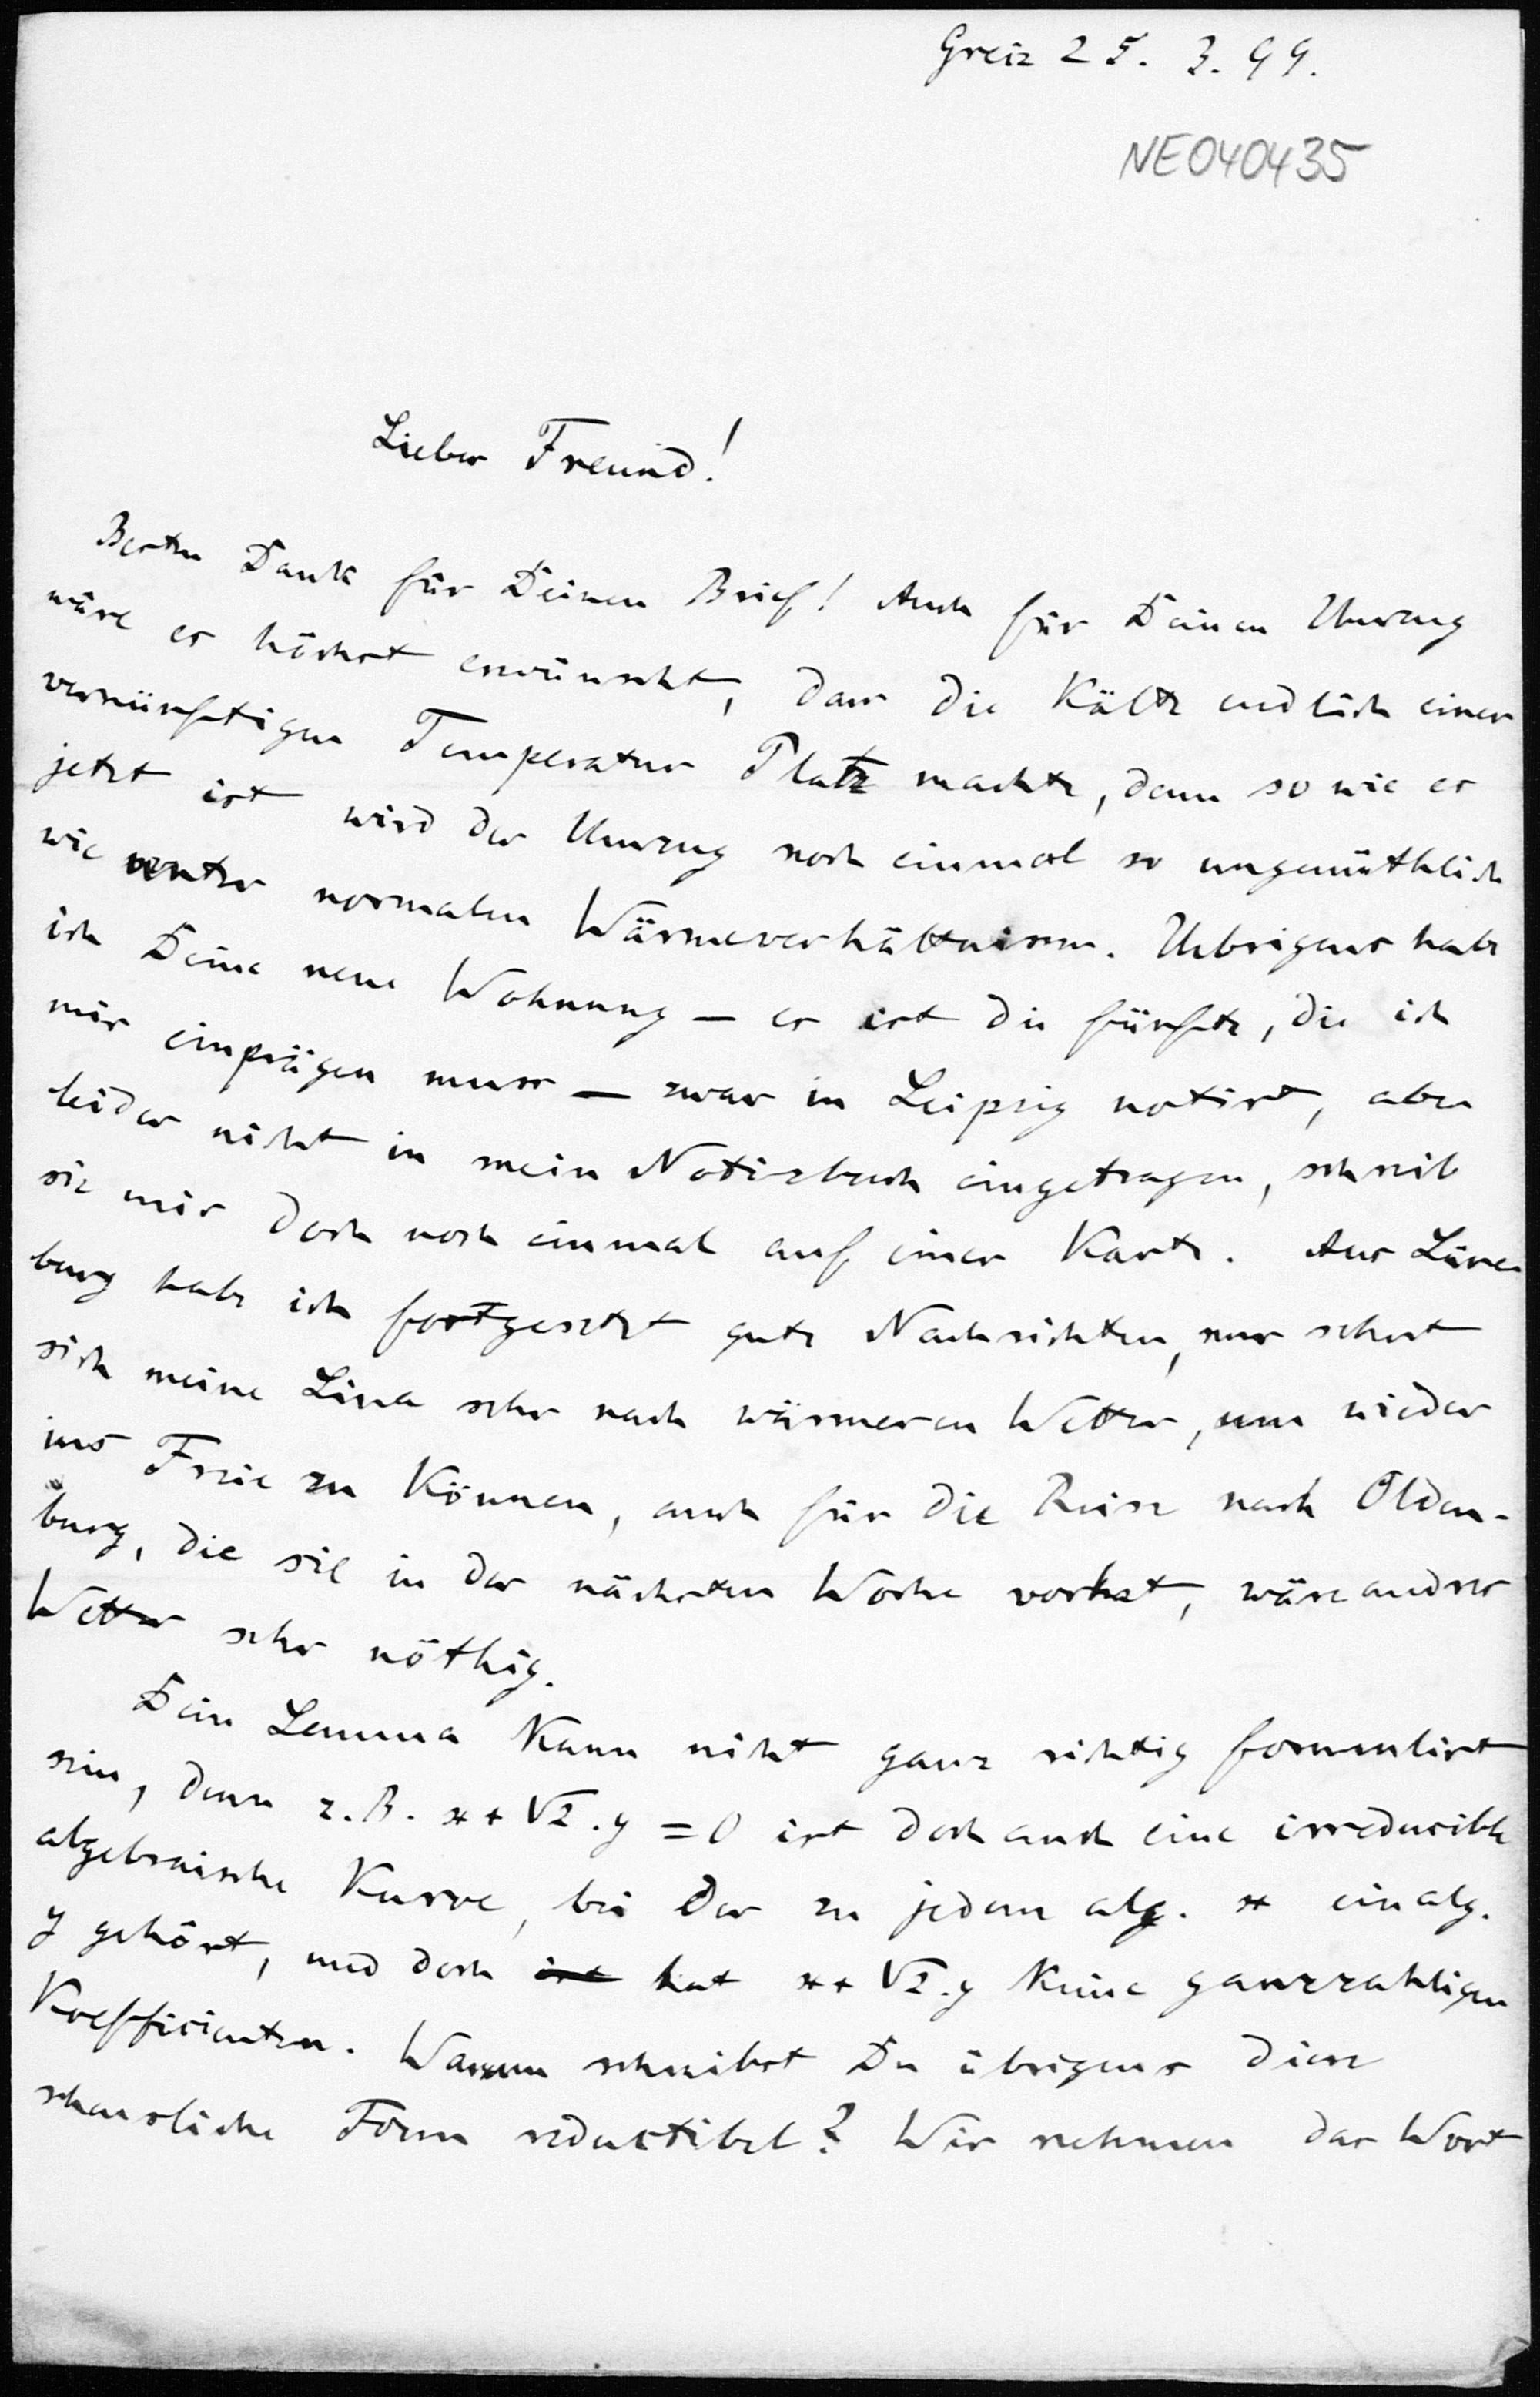 Greiz 25. 3. 99.
NE040435
Lieber Freund!
Besten Dank für Deinen Brief! Auch für Deinen Umzug
wäre es höchst erwünscht, dass die Kälte endlich einer
vernünftigen Temperatur Platz machte, denn so wie es
jetzt ist wird der Umzug noch einmal so ungemüthlich
wie unter normalen Wärmeverhältnissen. Uebrigens habe
ich Deine neue Wohnung — es ist die fünfte, die ich
mir einprägen muss — zwar in Leipzig notirt, aber
leider nicht in mein Notizbuch eingetragen, schreib
sie mir doch noch einmal auf einer Karte. Aus Lüne
burg habe ich fortgesetzt gute Nachrichten, nur sehnt
sich meine Lina sehr nach wärmeren Wetter, um wieder
ins Freie zu können, auch für die Reise nach Olden-
burg, die sie in der nächsten Woche vorhat, wäre andres
Wetter sehr nöthig.
Dein Lemma kann nicht ganz richtig formulirt
sein, denn z. B. x + √2 . y = 0 ist doch auch eine irreducible
algebraische Kurve, bei der zu jedem alg. x ein alg.
y gehört, und doch ist hat x + √2 . y keine ganzzahligen
Koefficienten. Warum schreibst Du übrigens diese
scheussliche Form reductibel? Wir nehmen das Wort